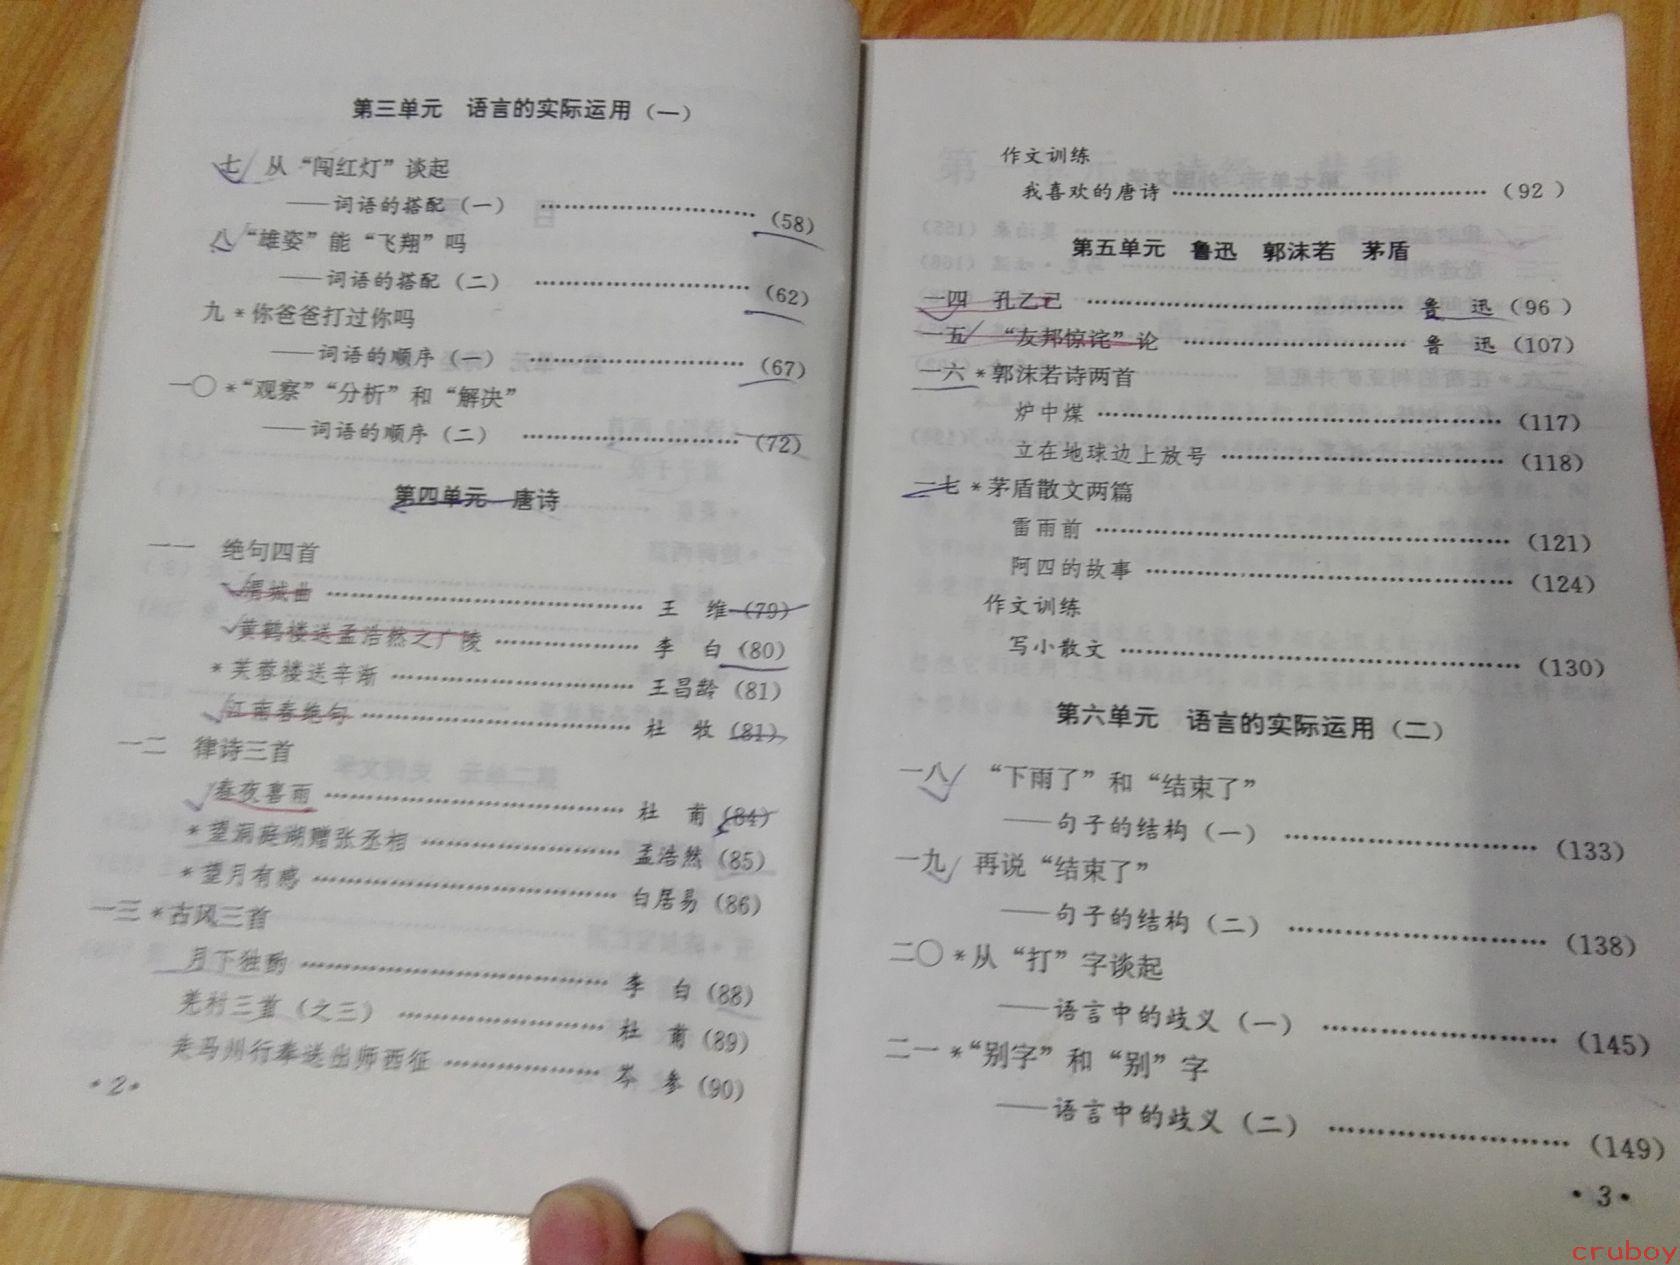 第三单元 语言的实际运用（一）
七 从“闯红灯”谈起
——词语的搭配（一） ………………………（58）
八 “雄姿”能“飞翔”吗
——词语的搭配（二） ………………………（62）
九 *你爸爸打过你吗
——词语的顺序（一） ………………………（67）
一〇 *“观察”“分析”和“解决”
——词语的顺序（二） ………………………（72）
第四单元 唐诗
一一 绝句四首
渭城曲 ………………………… 王 维（79）
黄鹤楼送孟浩然之广陵 ……………… 李 白（80）
*芙蓉楼送辛渐 ……………………… 王昌龄（81）
江南春绝句 ………………………… 杜 牧（81）
一二 律诗三首
春夜喜雨 ………………………… 杜 甫（84）
*望洞庭湖赠张丞相 ……………… 孟浩然（85）
*望月有感 ………………………… 白居易（86）
一三 *古风三首
月下独酌 ………………………… 李 白（88）
羌村三首（之三） ……………… 杜 甫（89）
走马川行奉送出师西征 ……………… 岑 参（90）
·2·
作文训练
我喜欢的唐诗 ………………………………（92）
第五单元 鲁迅 郭沫若 茅盾
一四 孔乙己 ………………………… 鲁 迅（96）
一五 “友邦惊诧”论 ………………… 鲁 迅（107）
一六 *郭沫若诗两首
炉中煤 ………………………………（117）
立在地球边上放号 ………………………（118）
一七 *茅盾散文两篇
雷雨前 ………………………………（121）
阿四的故事 ………………………………（124）
作文训练
写小散文 ………………………………（130）
第六单元 语言的实际运用（二）
一八 “下雨了”和“结束了”
——句子的结构（一） ………………………（133）
一九 再说“结束了”
——句子的结构（二） ………………………（138）
二〇 *从“打”字谈起
——语言中的歧义（一） ………………………（145）
二一 *“别字”和“别”字
——语言中的歧义（二） ………………………（149）
·3·
cruboy